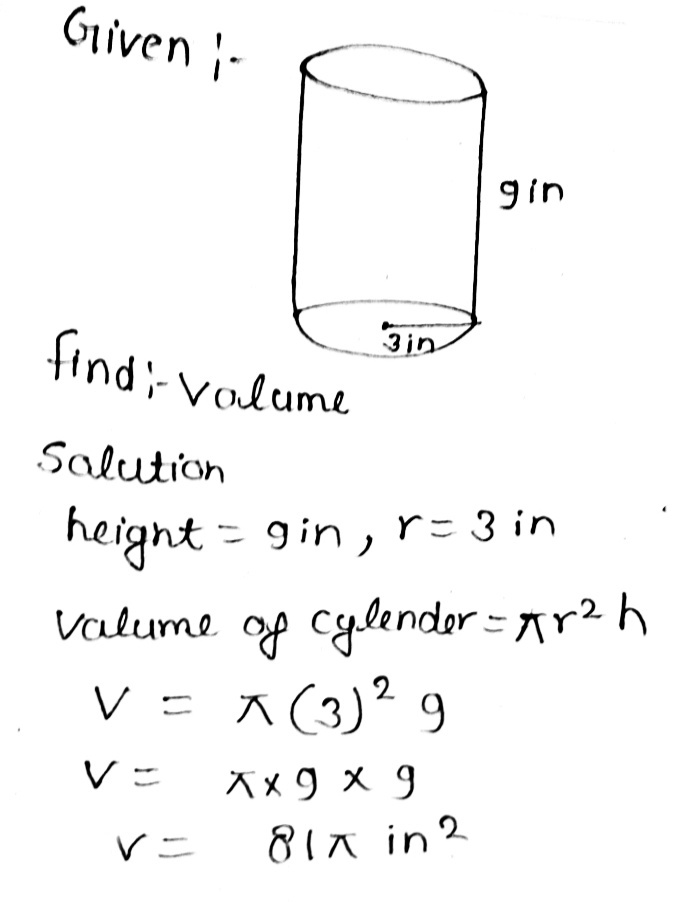 Given :-
9in
3in
find :- Volume
Solution
height = 9in, r = 3 in
Volume of cylender = πr² h
V = π(3)² 9
V = π×9 × 9
V = 81π in²